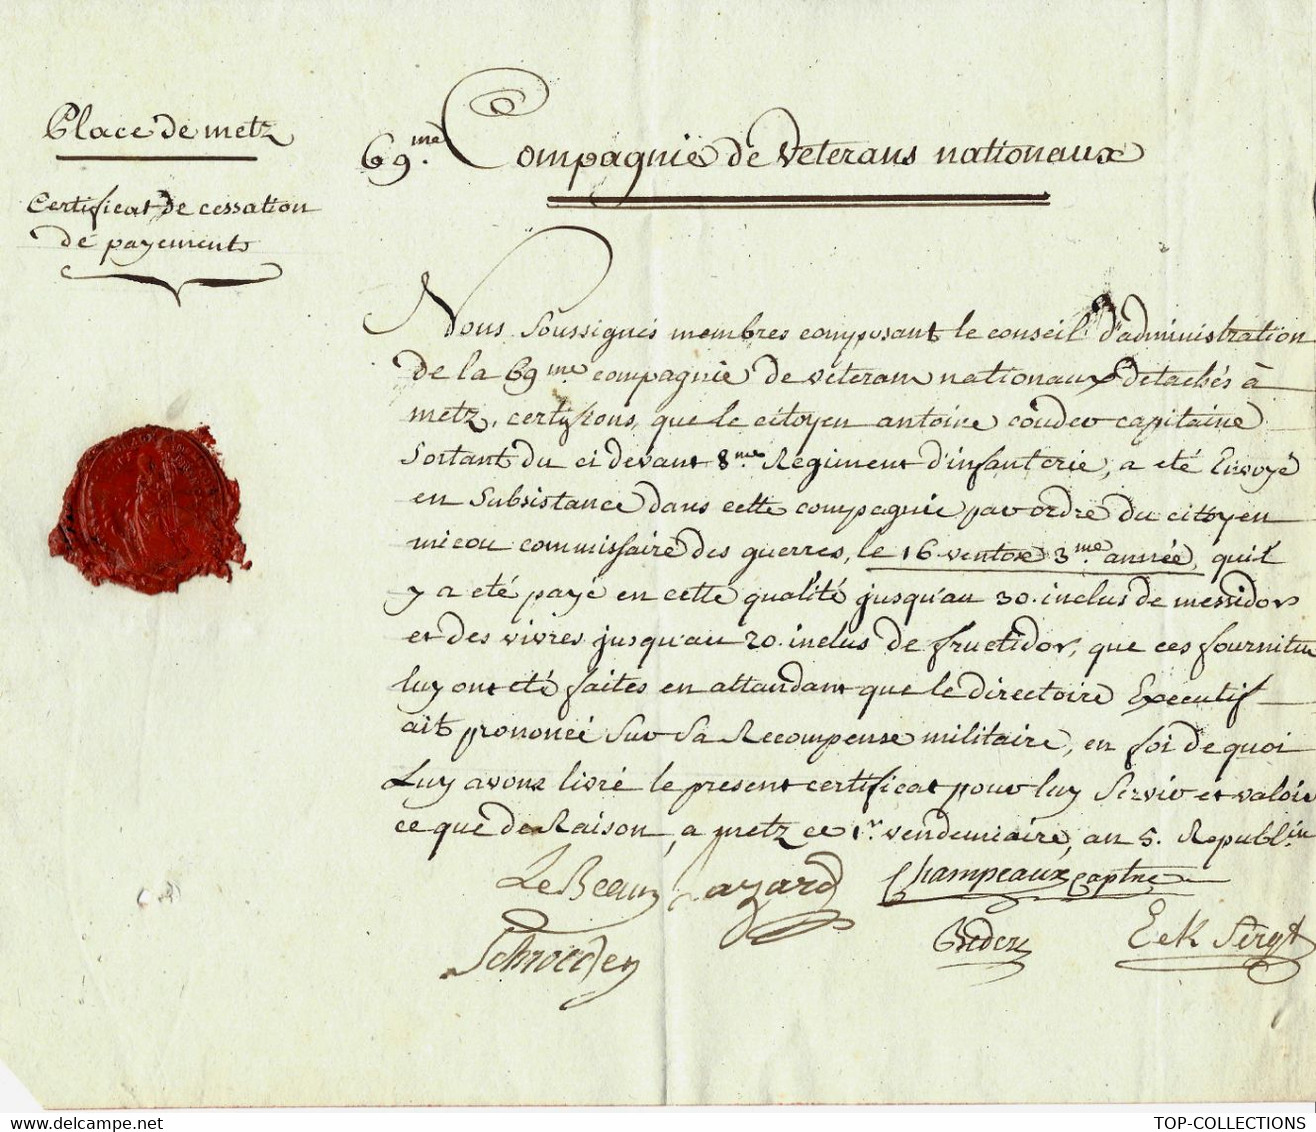 Place de metz
Certificat de cessation
de payements
69.me Compagnie de Veterans nationaux
Nous Soussignés membres composant le conseil d'administration
de la 69me compagnie de véterans nationaux detachés à
metz, certifions, que le citoyen antoine coudev capitaine
Sortant du ci devant 8.me Regiment d'infanterie, a eté Envoyé
en Subsistance dans cette compagnie par ordre du citoyen
micou commissaire des guerres, le 16 ventose 3me année, qu'il
y a eté payé en cette qualité jusqu'au 30. inclus de messidor
et des vivres jusqu'au 20. inclus de fructidor, que ces fournitu
luy ont eté faites en attandant que le directoire Executif
ait prononcé Sur Sa Recompense militaire, en foi de quoi
Luy avons livré le present certificat pour luy Servir et valoir
ce que de Raison, a metz ce 1.r vendemiaire, an 5. Republ.in
LeBeau Lazard Champeaux captne
Schroeder Eck Sergt
TOP-COLLECTIONS